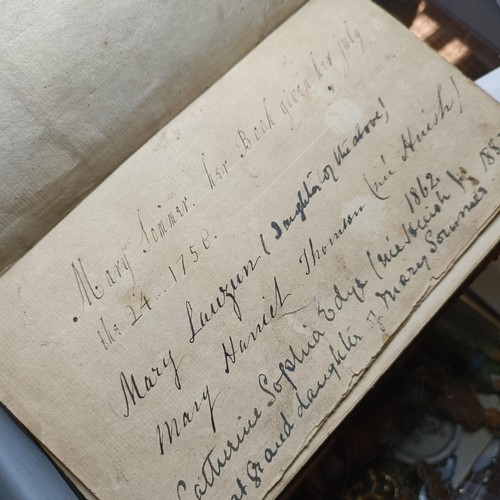 Mary Sommer her Book given her July
the 24 1750.
Mary Lauzun (daughter of the above)
Mary Harriet Thomson (née Huish)
1862
Catherine Sophia Edye (née Huish) 188
at grand daughter of Mary Sommer